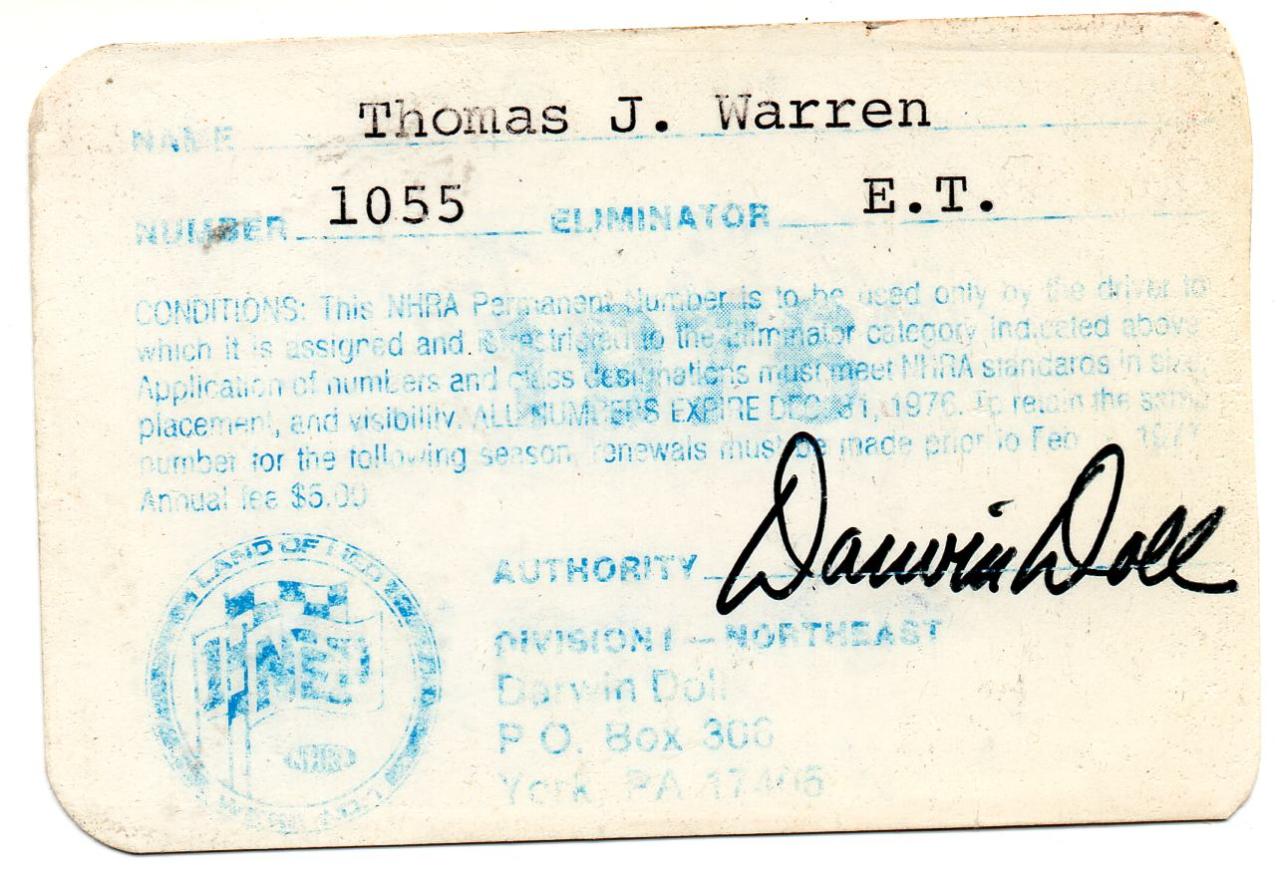 NAME Thomas J. Warren
NUMBER 1055 ELIMINATOR E.T.
CONDITIONS: This NHRA Permanent Number is to be used only by the driver to
which it is assigned and is restricted to the eliminator category indicated above.
Application of numbers and class designations must meet NHRA standards in size,
placement, and visibility. ALL NUMBERS EXPIRE DEC. 31, 1976. To retain the same
number for the following season, renewals must be made prior to Feb 1977
Annual fee $5.00
LAND OF THE
NED
NHRA
AUTHORITY Darwin Doll
DIVISION I - NORTHEAST
Darwin Doll
P.O. Box 300
York, PA